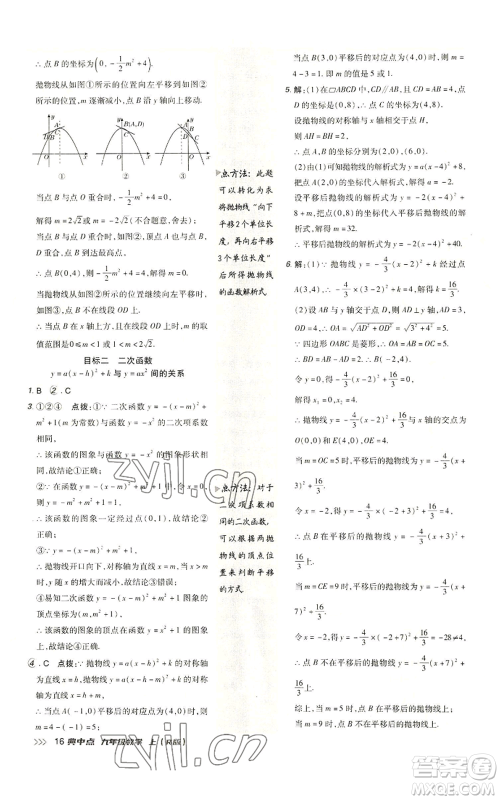 ∴点 B 的坐标为(0, -1/2 m² +4).
抛物线从图①所示的位置向左平移到如图②
所示的位置, m 逐渐减小, 点 B 沿 y 轴向上
移动.
y y B(A,D) y
A B A
O x O x O x
① ② ③
当点 B 与点 O 重合时, -1/2 m² +4=0,
解得 m=2√2 或 m=-2√2(舍去);
当点 B 与点 D 重合时, 如图②, 顶点 A 也与
点 B, D 重合, 点 B 到达最高点.
∴点 B(0,4), ∴ -1/2 m² +4=4, 解得 m=0.
当抛物线从如图②所示的位置继续向左平
移时, 如图③, 点 B 不在线段 OD 上.
∴当点 B 在线段 OD 上时, 顶点 A 的横坐标的
取值范围是 0≤m≤2√2.
目标二 二次函数
y=a(x-h)² +k 与 y=ax² 的关系
1. B 2. C
3. ①②④ 点拨: ①∵二次函数 y=-(x-m)² +
m+1(m 为常数)与函数 y=-x² 的二次项系
数相同, ∴该函数的图象与函数 y=-x² 的图象形状相
同, 故结论①正确;
∴该函数的图象一定经过点(0,1), 故结论②
正确;
③∵y=-(x-m)² +m²+1,
∴抛物线开口向下, 对称轴为直线 x=m,
∴当 x>m 时, y 随 x 的增大而减小, 故结论
③错误;
④易知二次函数 y=-(x-m)² +m² +1 的
顶点坐标为(m, m² +1),
∴该函数的图象的顶点在函数 y=x² +1 的
图象上, 故结论④正确.
4. C 点拨: ∵抛物线 y=a(x-h)² +k 的对称轴
为直线 x=h, 抛物线 y=a(x-h-m)² +k 的对称轴
为直线 x=h+m,
∴当点 A(-1,0)平移后的对应点为(4,0)
时, 则 m=4-(-1)=5;
点方法: 此题
可以转化为求
将抛物线“向下
平移2个单位长
度, 再向右平移
3个单位长度”
后所得抛物线
的函数解析式.
点方法: 对于
二次项系数相
同的二次函数,
可以根据两抛
物线的顶点位
置来判断平移
的方式.
当点 B(3,0)平移后的对应点为(4,0)时, 则 m
=4-3=1, 即 m 的值是 5 或 1.
5. 解: (1)在▱ABCD 中, CD∥AB, 且 CD=AB
=4, ∴点 C 的坐标为(4,8).
设抛物线的对称轴与 x 轴相交于点 H,
则 AH=BH=2,
∴点 A, B 的坐标分别为(2,0), (6,0).
(2)由(1)可设抛物线的解析式为 y=a(x-4)² +8,
把点 A(2,0)的坐标代入解析式, 解得 a=-2.
设平移后抛物线的解析式为 y=-2(x-4)² +
8+k, 把点 D(0,8)的坐标代入平移后抛物线的解
析式, 解得 k=32.
∴平移后抛物线的解析式为 y=-2(x-4)² +40.
6. 解: (1)∵抛物线 y=-4/3(x-2)² +k 经过点
A(3,4), ∴ -4/3×(3-2)² +k=4, 解得 k=16/3.
(2)设 AB 与 y 轴交于点 D, 则 AD⊥y 轴, AD
=3, OD=4, ∴OA=√(AD² +OD²)=√(3² +4²)=5.
∵四边形 OABC 是菱形, ∴OA=AB=OC=5,
∴BD=AB-AD=2. ∴B(-2,4).
令 y=0, 得 -4/3(x-2)² +16/3=0, 解得 x₁=0, x₂=4,
∴抛物线 y=-4/3(x-2)² +16/3 与 x 轴的交点
为点 O(0,0)和 E(4,0), OE=4.
当 m=OC=5 时, 平移后的抛物线为 y=-4/3(x+
3)² +16/3,
令 x=-2, 得 y=-4/3×(-2+3)² +16/3=4,
∴点 B 在平移后的抛物线 y=-4/3(x+3)² +
16/3 上.
当 m=CE=9 时, 平移后的抛物线为 y=-4/3(x
+7)² +16/3,
令 x=-2, 得 y=-4/3(-2+7)² +16/3=-28≠4,
∴点 B 不在平移后的抛物线 y=-4/3(x+7)²
+16/3 上.
zyjl.cn
zyjl.cn
16 典中点 九年级数学 上 (R版)